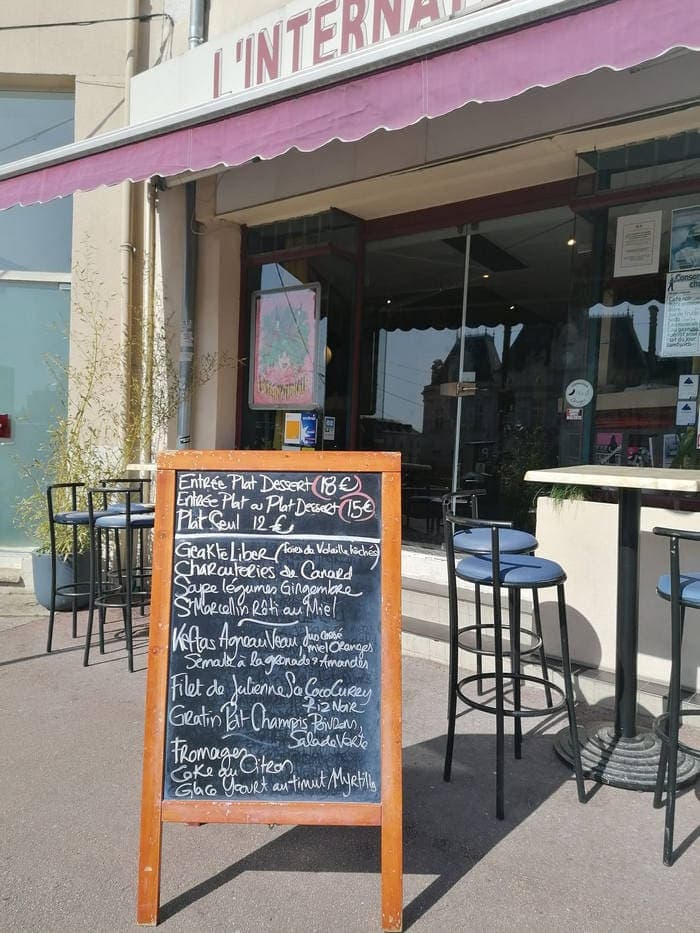 L'INTERNA
Entrée Plat Dessert 18€
Entrée Plat ou Plat Dessert 15€
Plat Seul 12€
Geakte Liber (Foies de Volaille hachés)
Charcuteries de Canard
Soupe légumes Gingembre
St Marcellin Rôti au Miel
Keftas Agneau Veau Jus Corsé
miel Oranges
Semoule à la grenade & Amandes
Filet de Julienne Sce Coco Curry
Riz Noir
Gratin Pdt Champis Poivrons,
Salade Verte
Fromages
Cake au Citron
Glace Yaourt au timut Myrtille